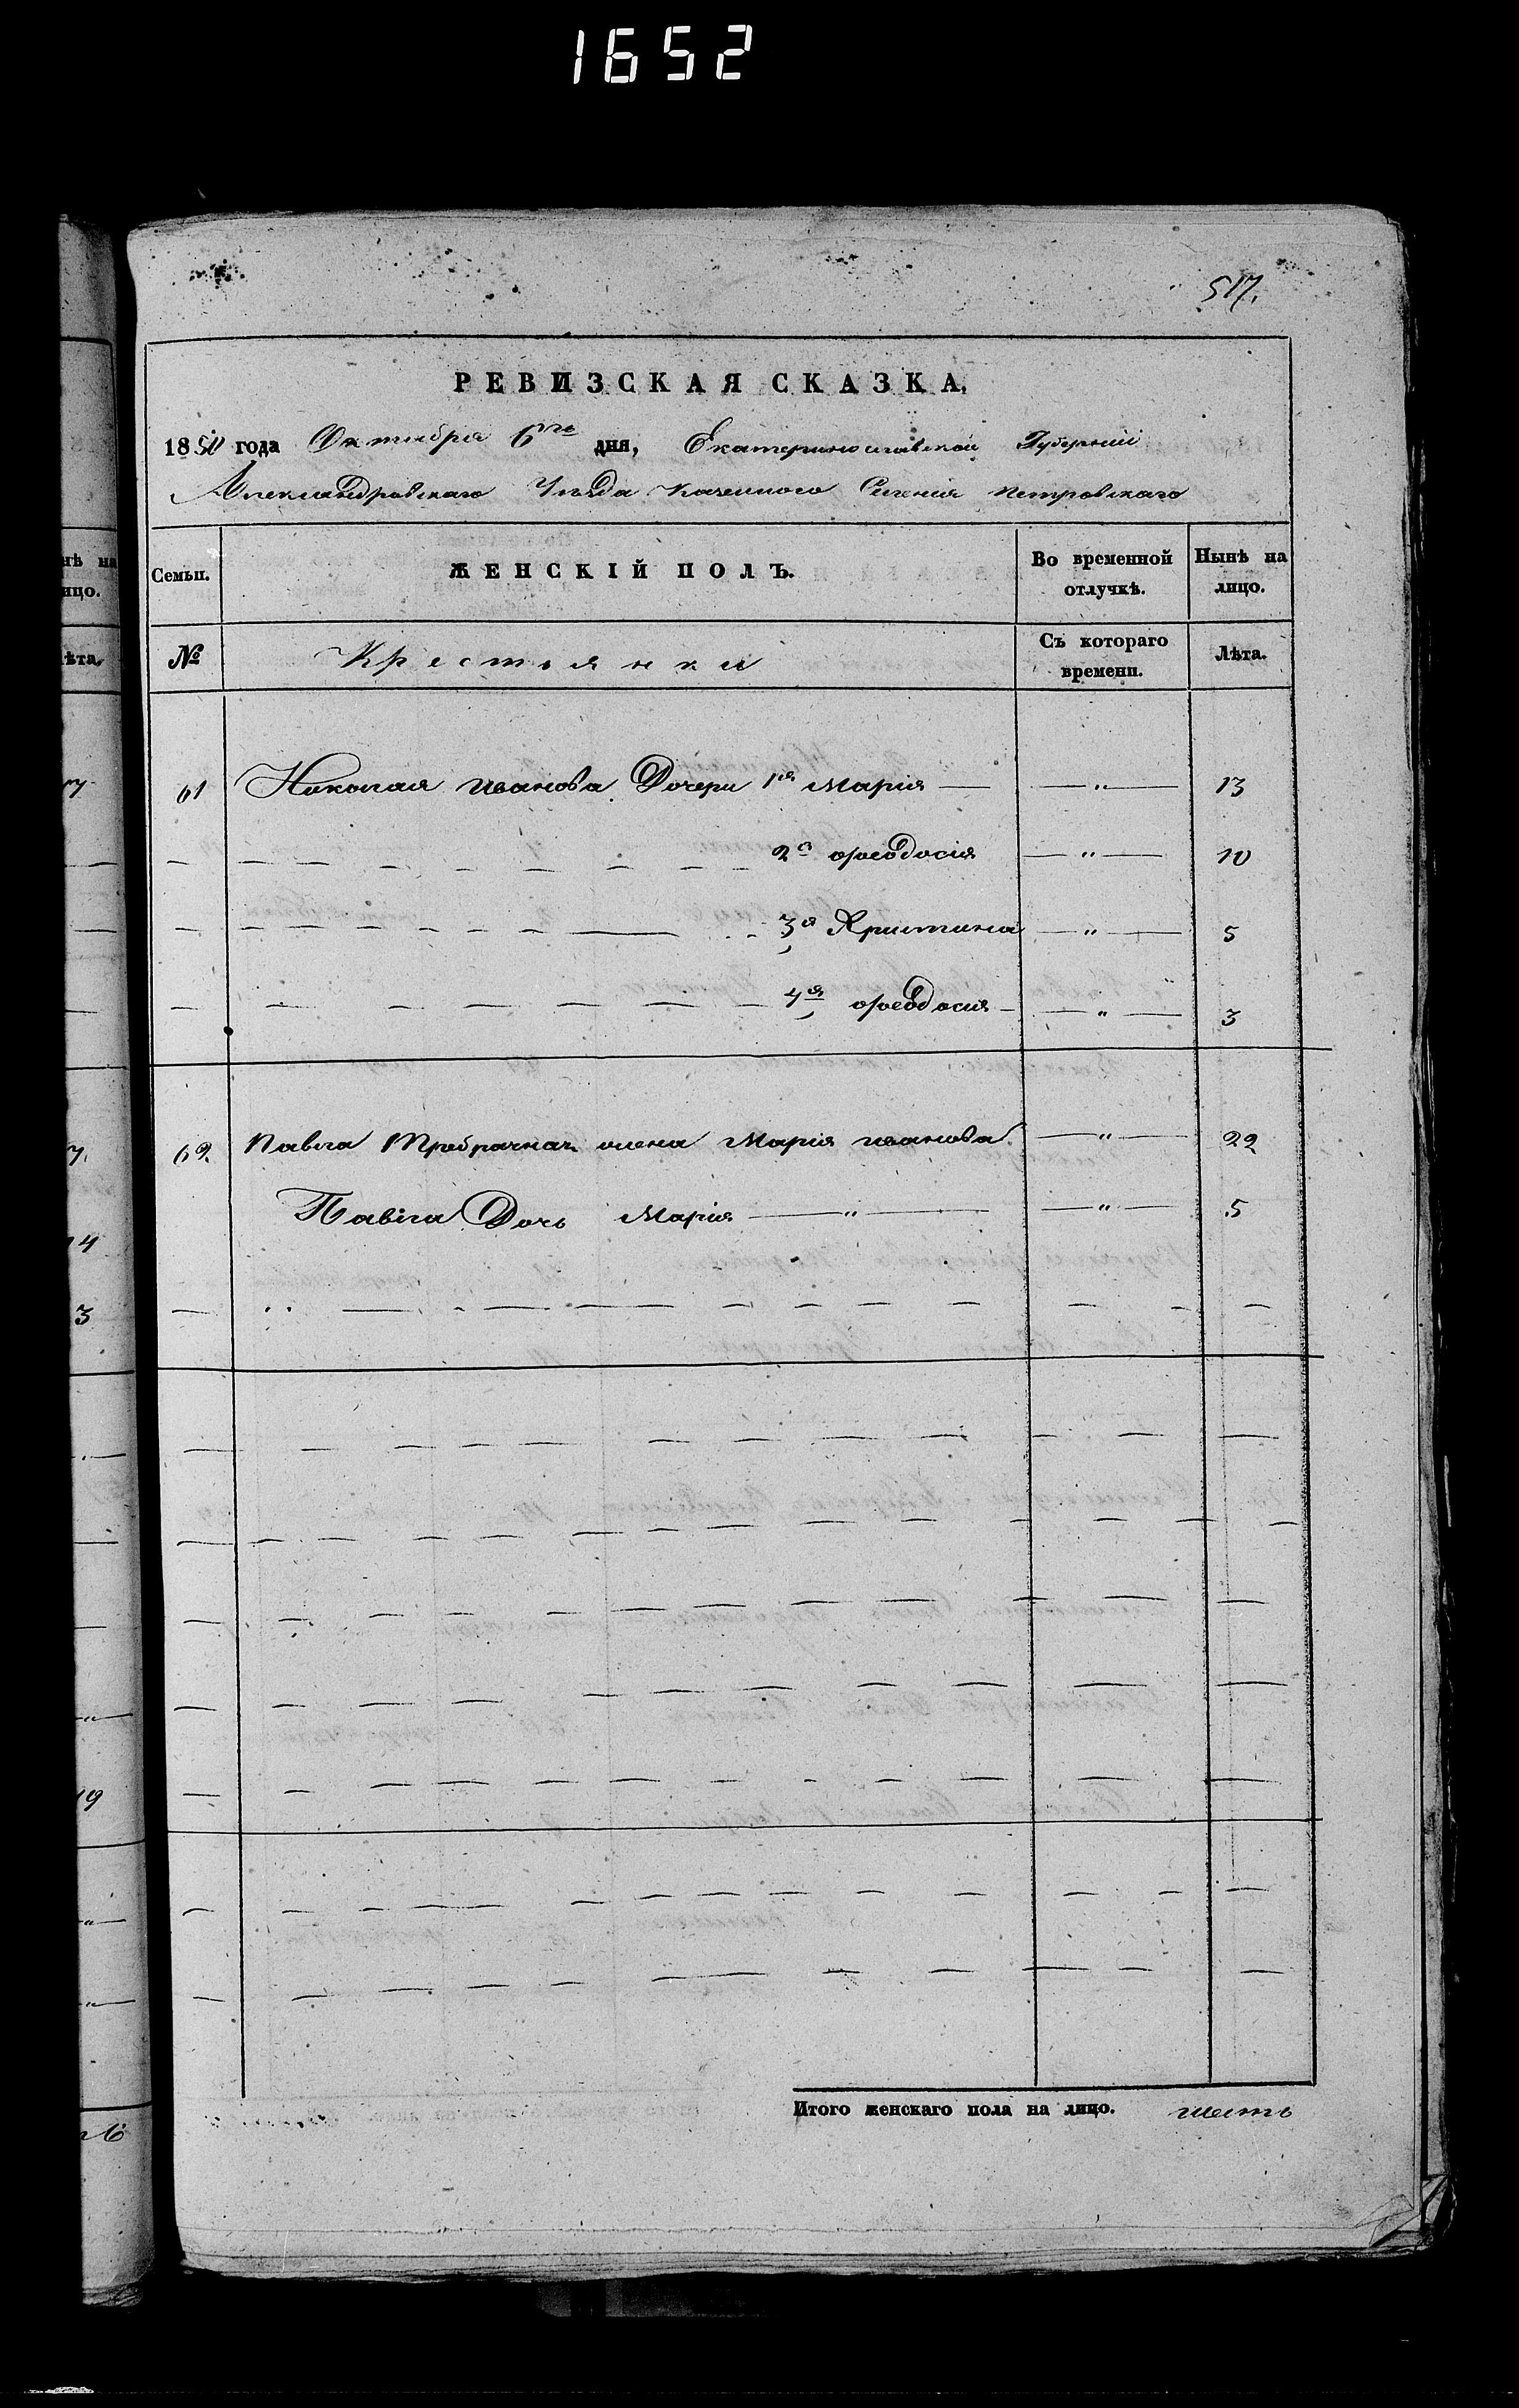 1652
517.
РЕВИЗСКАЯ СКАЗКА.
1850 года Октября 6го дня, Екатеринославской Губерніи
Александровскаго Уѣзда Казенного Селенія Петровскаго
Семьи. ЖЕНСКІЙ ПОЛЪ. Во временной отлучкѣ. Нынѣ на лицо.
№ Крестьянки Съ котораго времени. Лѣта.
61 Николая Иванова Дочери 1я Марія — „ — 13
2я Феодосія — „ — 10
3я Христина — „ — 5
4я Феодосия — „ — 3
62 Павла жена Марія Иванова — „ — 22
Павла Дочь Марія — „ — — „ — 5
Итого женскаго пола на лицо. шесть